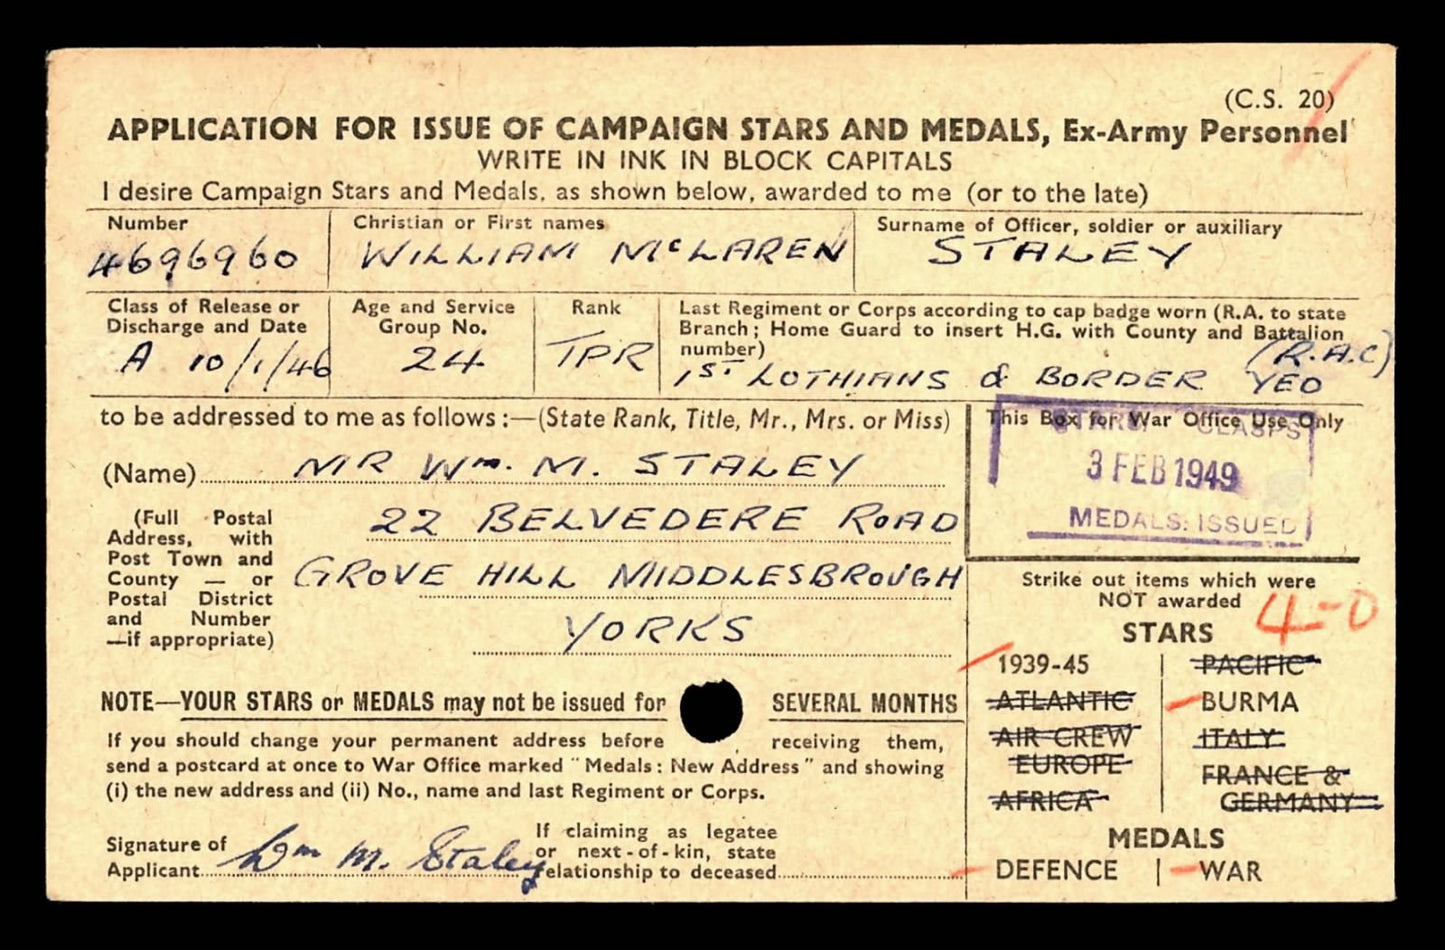 (C.S. 20)
APPLICATION FOR ISSUE OF CAMPAIGN STARS AND MEDALS, Ex-Army Personnel
WRITE IN INK IN BLOCK CAPITALS
I desire Campaign Stars and Medals, as shown below, awarded to me (or to the late)
Number
4696960
Christian or First names
WILLIAM McLAREN
Surname of Officer, soldier or auxiliary
STALEY
Class of Release or
Discharge and Date
A 10/1/46
Age and Service
Group No.
24
Rank
TPR
Last Regiment or Corps according to cap badge worn (R.A. to state
Branch; Home Guard to insert H.G. with County and Battalion
number)
(R.A.C)
1ST LOTHIANS & BORDER YEO
to be addressed to me as follows:—(State Rank, Title, Mr., Mrs. or Miss)
(Name) MR Wm. M. STALEY
(Full Postal
Address, with
Post Town and
County — or
Postal District
and Number
—if appropriate)
22 BELVEDERE ROAD
GROVE HILL MIDDLESBROUGH
YORKS
This Box for War Office Use Only
CLASPS
3 FEB 1949
MEDALS: ISSUED
NOTE—YOUR STARS or MEDALS may not be issued for SEVERAL MONTHS
If you should change your permanent address before receiving them,
send a postcard at once to War Office marked "Medals: New Address" and showing
(i) the new address and (ii) No., name and last Regiment or Corps.
Signature of
Applicant Wm M. Staley
If claiming as legatee
or next-of-kin, state
relationship to deceased
Strike out items which were
NOT awarded
4-0
STARS
1939-45
ATLANTIC
AIR CREW
EUROPE
AFRICA
PACIFIC
BURMA
ITALY
FRANCE &
GERMANY
MEDALS
DEFENCE | WAR